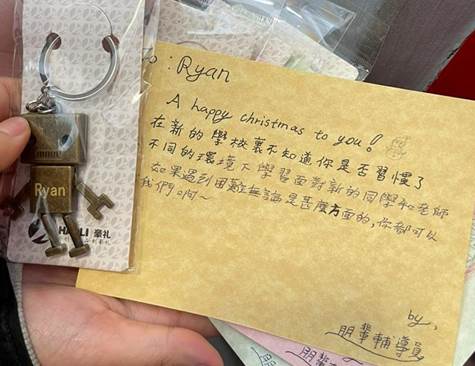 Ryan
HAOLI 豪礼
To: Ryan
A happy christmas to you!
在新的學校裏不知道你是否習慣了
不同的環境下學習面對新的同學和老師
如果遇到困難無論是甚麼方面的,你都可以
我們啊~
by,
朋輩輔導員
朋輩